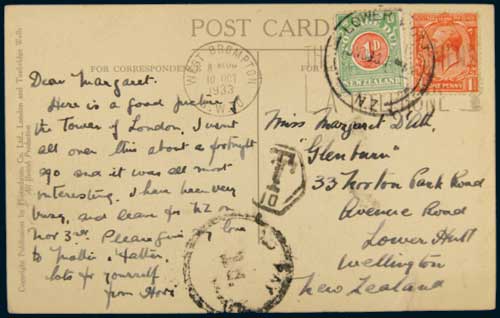 POST CARD
FOR CORRESPONDENCE
WEST BROMPTON
10 OCT
1933
S.W.10
1D
NEW ZEALAND
LOWER HUTT
N.Z.
ONE PENNY
Dear Margaret.
Here is a good picture of
the Tower of London, I went
all over this about a fortnight
ago and it was all most
interesting. I have been very
busy, and leave for NZ on
Nov 3rd. Please give my love
to Mollie &
lots for yourself
from
Miss Margaret
"Glenbarn"
33 Norton Park Road
Avenue Road
Lower Hutt
Wellington
New Zealand
T
Copyright Publication by Photochrom Co. Ltd., London and Tunbridge Wells.
All British Production